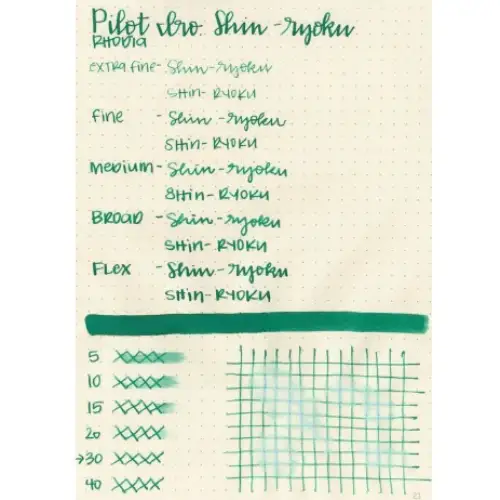 Pilot Iro. Shin-ryoku
RHODIA
EXTRA fine- Shin-ryoku
SHin- RYOKU
fine - Shin-ryoku
SHin- RYOKU
Medium- Shin-ryoku
SHin- RYOKU
BROAD - Shin-ryoku
SHin- RYOKU
FLex - Shin-ryoku
SHin- RYOKU
5 XXXX
10 XXXX
15 XXXX
20 XXXX
→30 XXXX
40 XXXX